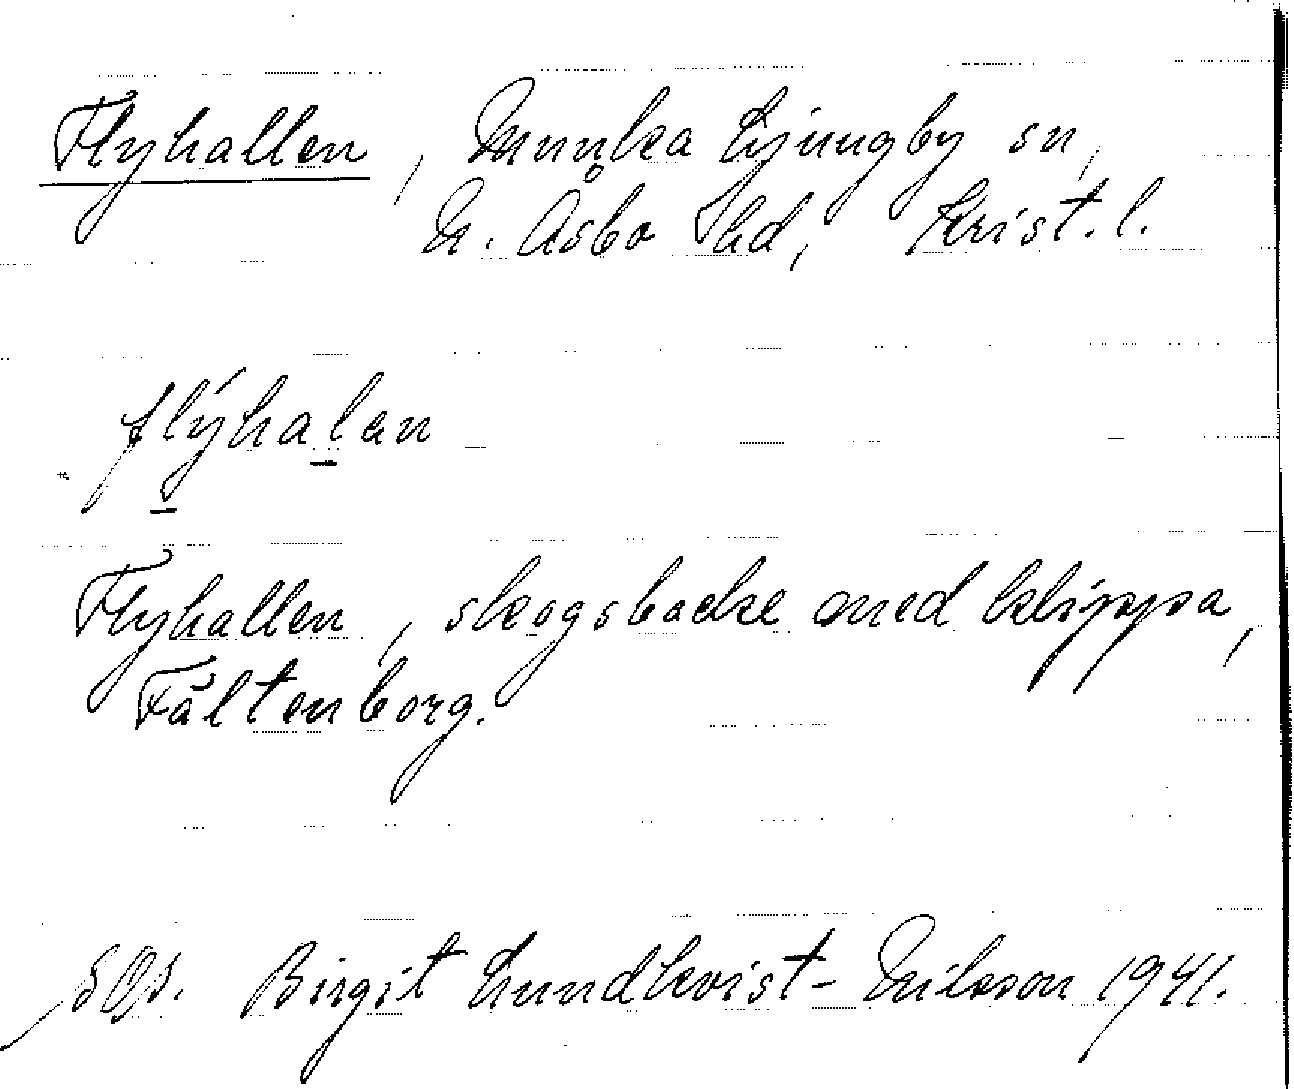 Flyhallen, Munka Ljungby sn,
N. Åsbo hd, Krist. l.
flýhalan
Flyhallen, skogsbacke med klippa,
Fältenborg.
Birgit Lundkvist-Nilsson 1941.